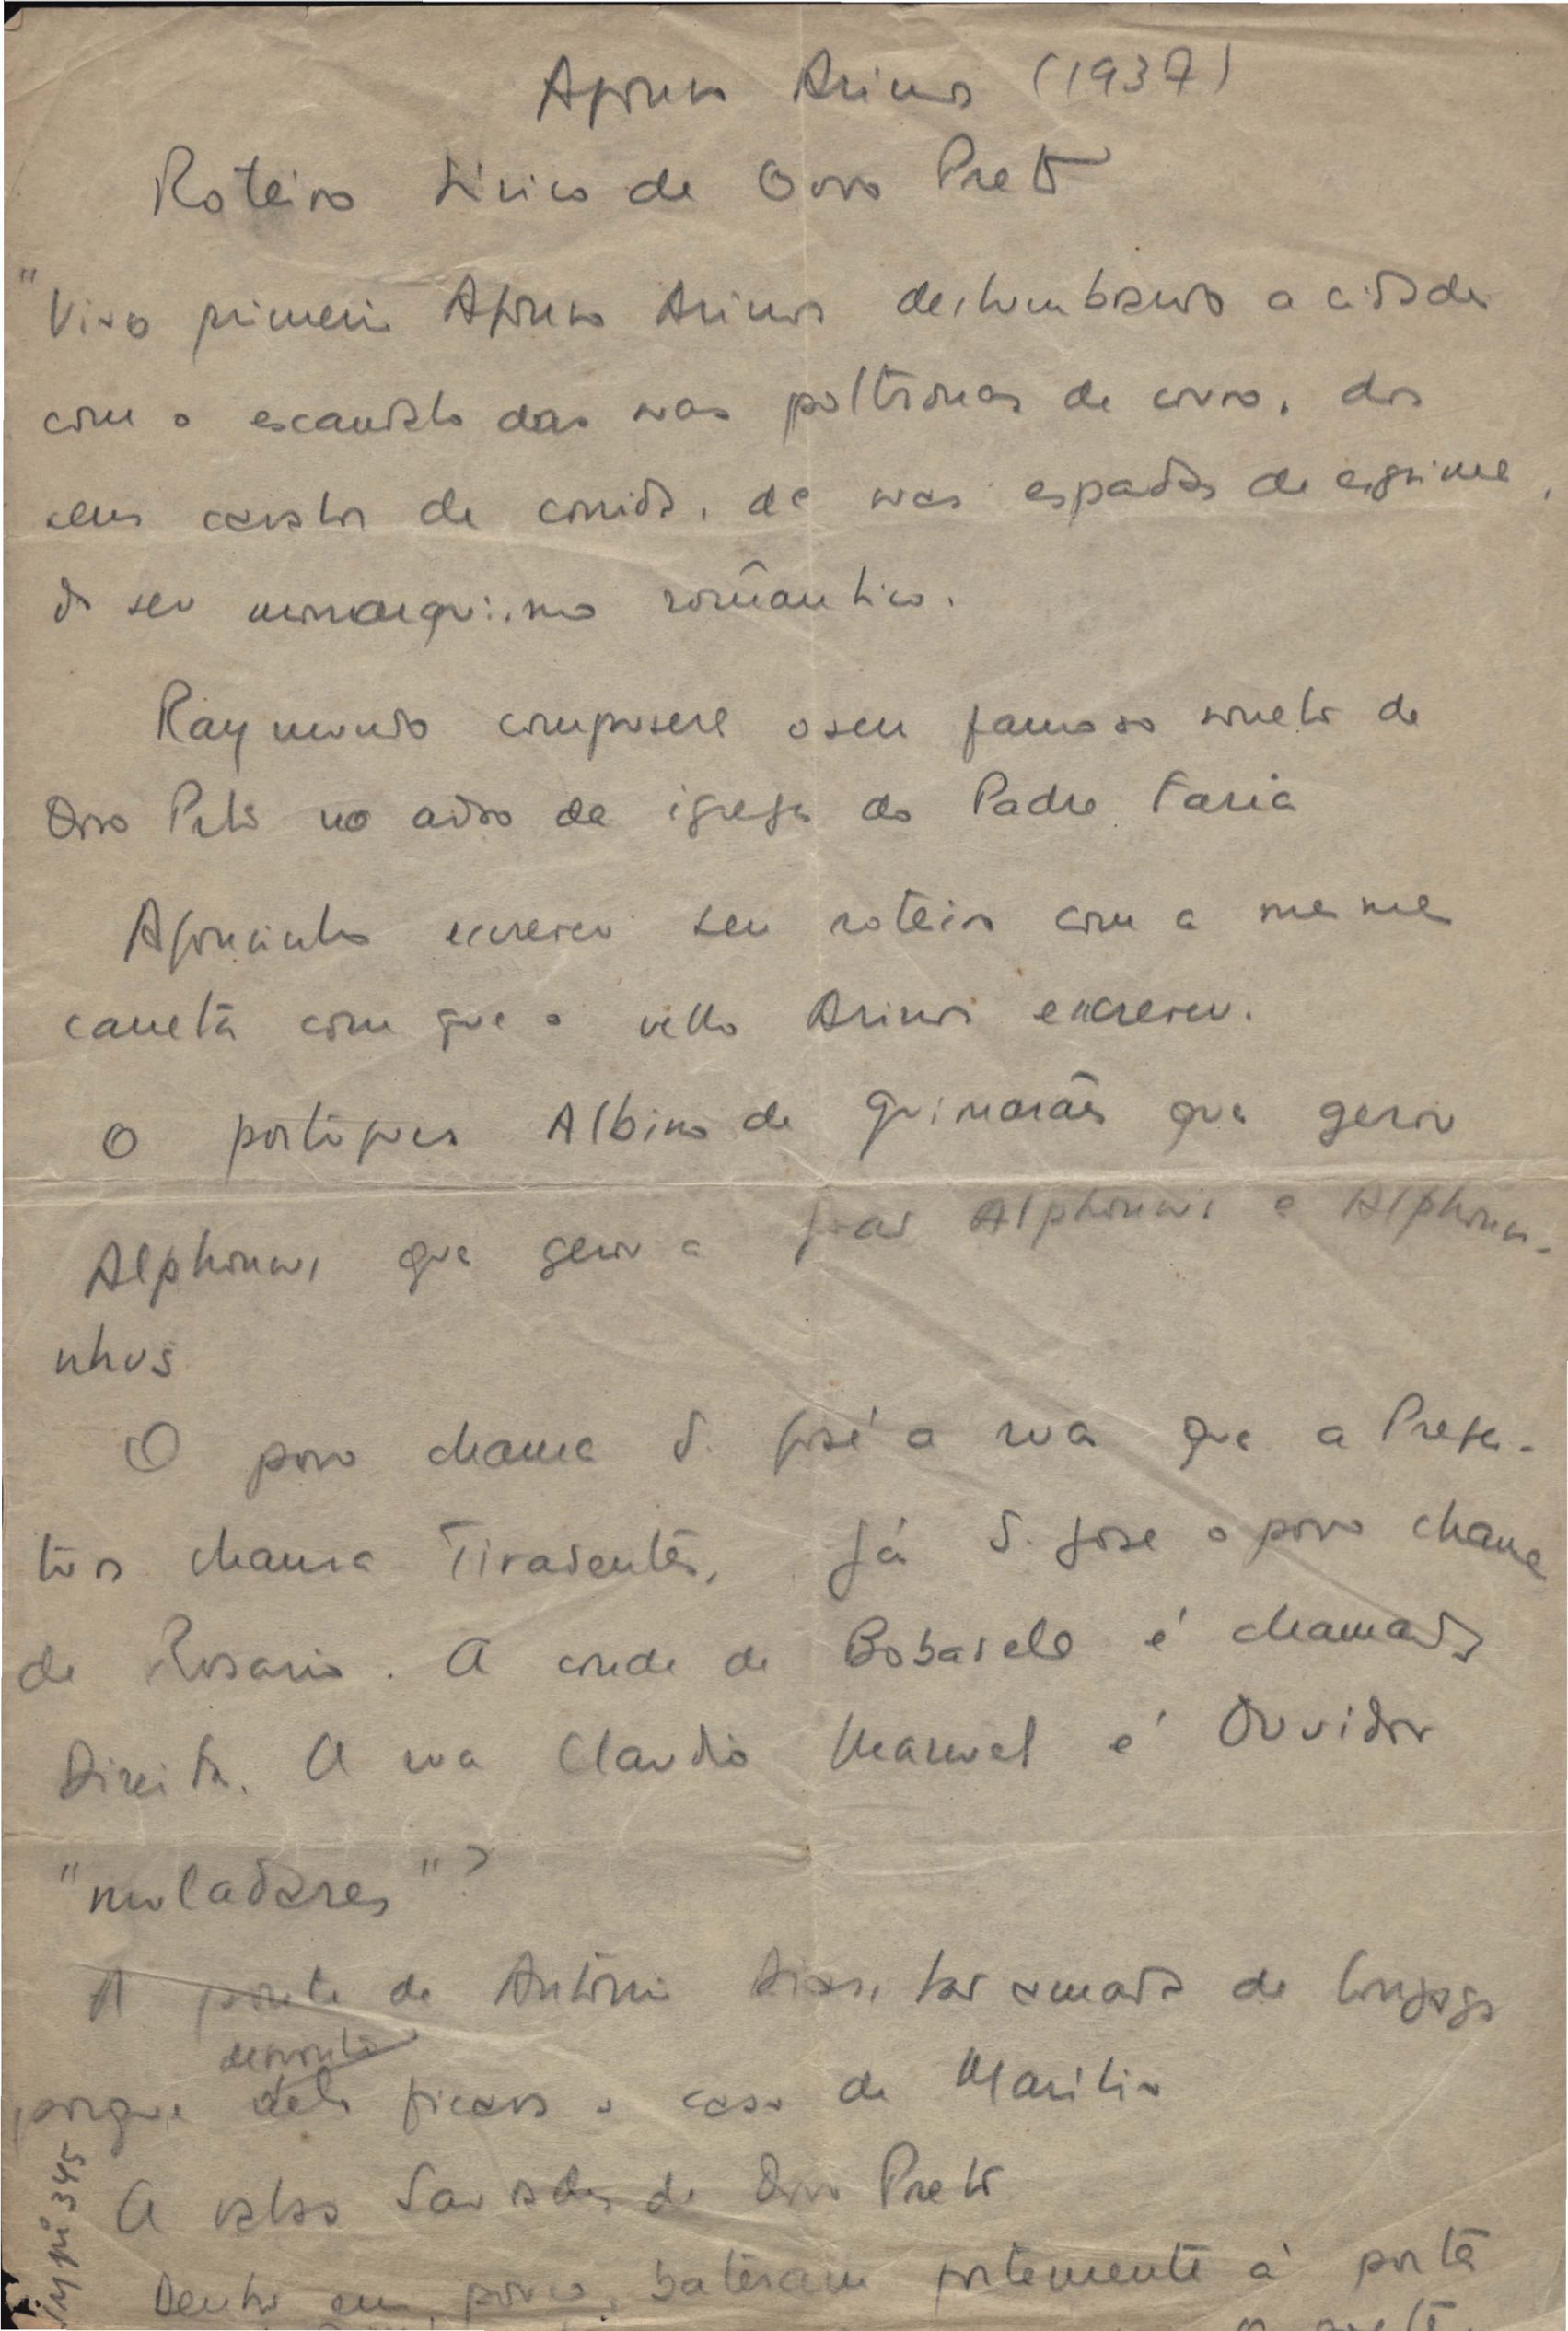 Afonso Arinos (1937)
Roteiro Lírico de Ouro Preto
"Vivo primeiro Afonso Arinos deslumbrando a cidade
com o escandalo das suas poltronas de couro, dos
seus cavalos de corrida, de suas espadas de esgrima,
do seu monarquismo romântico.
Raymundo compusera o seu famoso soneto de
Ouro Preto no adro da igreja do Padre Faria
Afonsinho escreveu seu roteiro com a mesma
caneta com que o velho Arinos escreveu.
O português Albino de Guimarães que gerou
Alphonsus que gerou a João Alphonsus e Alphonsus-
nhus
O povo chama S. José a rua que a Prefei-
tura chama Tiradentes. Já S. José o povo chama
de Rosario. A conde de Bobadela é chamada
Direita. A rua Claudio Manuel é Ouvidor
"muladares"?
A ponte de Antônio Dias, tão amada de Gonzaga
defronte
porque dela ficava a casa de Marilia
A valsa Saudades de Ouro Preto
Dentro em pouco, bateram fortemente à porta